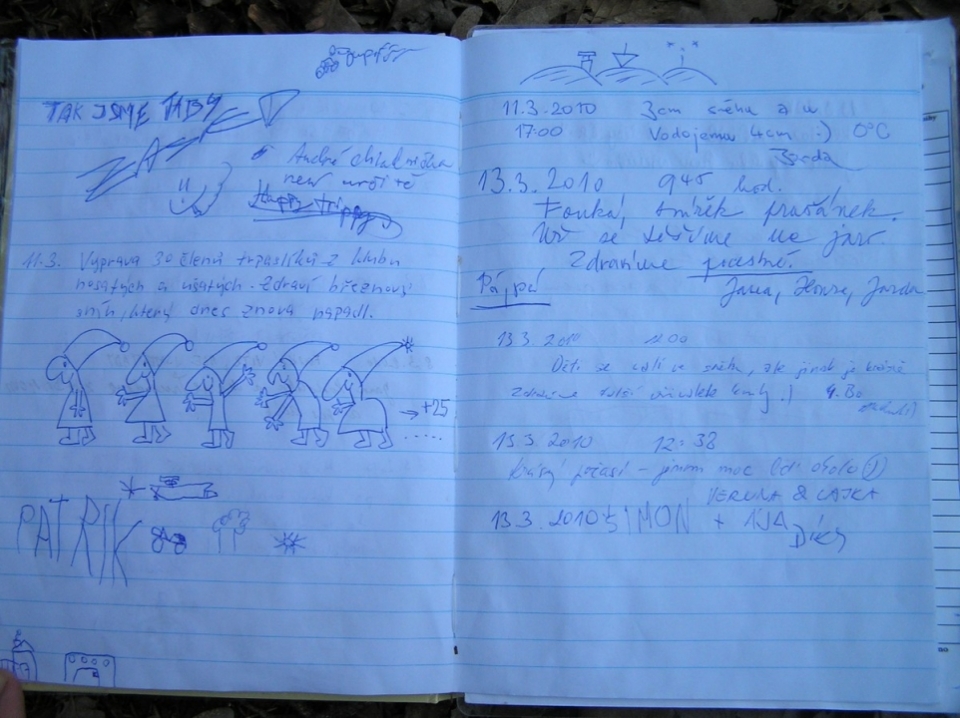 TAK JSME TADY
ZASE
André
new určitě
Happy trippy
11.3. Výprava 30 členů trpaslíků z klubu
nosatých a ušatých. Zdraví březnový
sníh, který dnes znova napadl.
→ +25
.....
PATRIK
11.3.2010 3cm sněhu a u
17:00 Vodojemu 4cm :) 0°C
Jarda
13.3.2010 9 45 hod.
Fouká, sníží prašánek.
Už se těšíme na jaro.
Zdravíme
Pá, pá Jana, Jarda
13.3.2010
Děti se válí ve sněhu, ale jinak je krásně
Zdravíme další
13.3.2010 12:38
krásný počasí - jenom moc lidí okolo :)
VERUNA & CAJKA
13.3.2010 ŠIMON + ÁJA
Díky